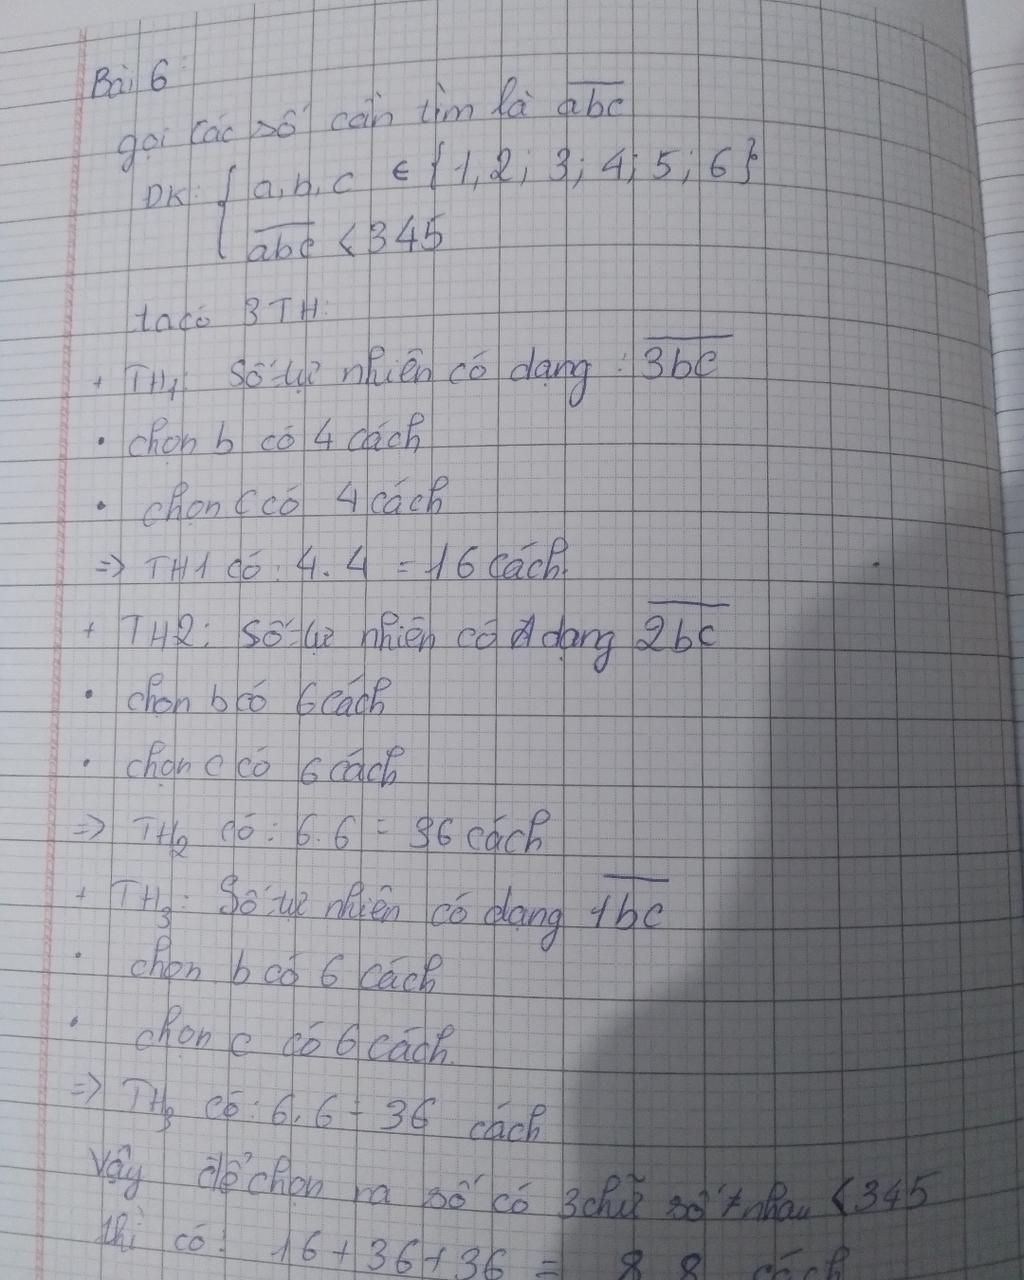 Bài 6:
gọi các số cần tìm là abc
ĐK: { a, b, c ∈ {1, 2; 3; 4; 5; 6}
abc < 345
ta có 3 TH:
+ TH1: Số tự nhiên có dạng : 3bc
• chọn b có 4 cách
• chọn c có 4 cách
=> TH1 có : 4. 4 = 16 cách.
+ TH2: Số tự nhiên có dạng 2bc
• chọn b có 6 cách
• chọn c có 6 cách
=> TH2 có : 6. 6 = 36 cách
+ TH3: Số tự nhiên có dạng 1bc
• chọn b có 6 cách
• chọn c có 6 cách.
=> TH3 có : 6. 6 = 36 cách
Vậy để chọn ra số có 3 chữ số ≠ nhau < 345
thì có: 16 + 36 + 36 = 88 cách